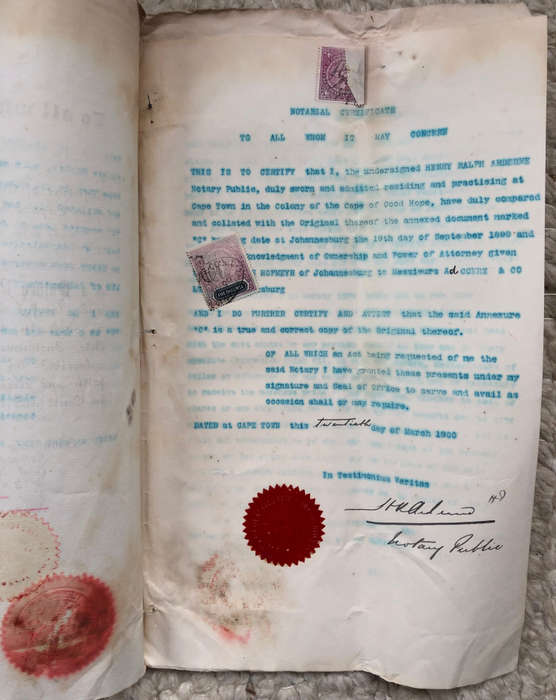 NOTARIAL CERTIFICATE
TO ALL WHOM IT MAY CONCERN
THIS IS TO CERTIFY that I, the undersigned HENRY RALPH ARDERNE
Notary Public, duly sworn and admitted residing and practising at
Cape Town in the Colony of the Cape of Good Hope, have duly compared
and collated with the Original thereof the annexed document marked
"C" being date at Johannesburg the 19th day of September 1890 and
knowledgment of Ownership and Power of Attorney given
HOFMEYR of Johannesburg to Messieurs Ad & CO
burg
AND I DO FURTHER CERTIFY AND ATTEST that the Annexure
"C" is a true and correct copy of the Original thereof.
OF ALL WHICH an Act being requested of me the
said Notary I have granted these presents under my
signature and Seal of Office to serve and avail as
occasion shall or may require.
DATED at CAPE TOWN this twentieth day of March 1900
In Testimonium Veritas
HRArderne
Notary Public